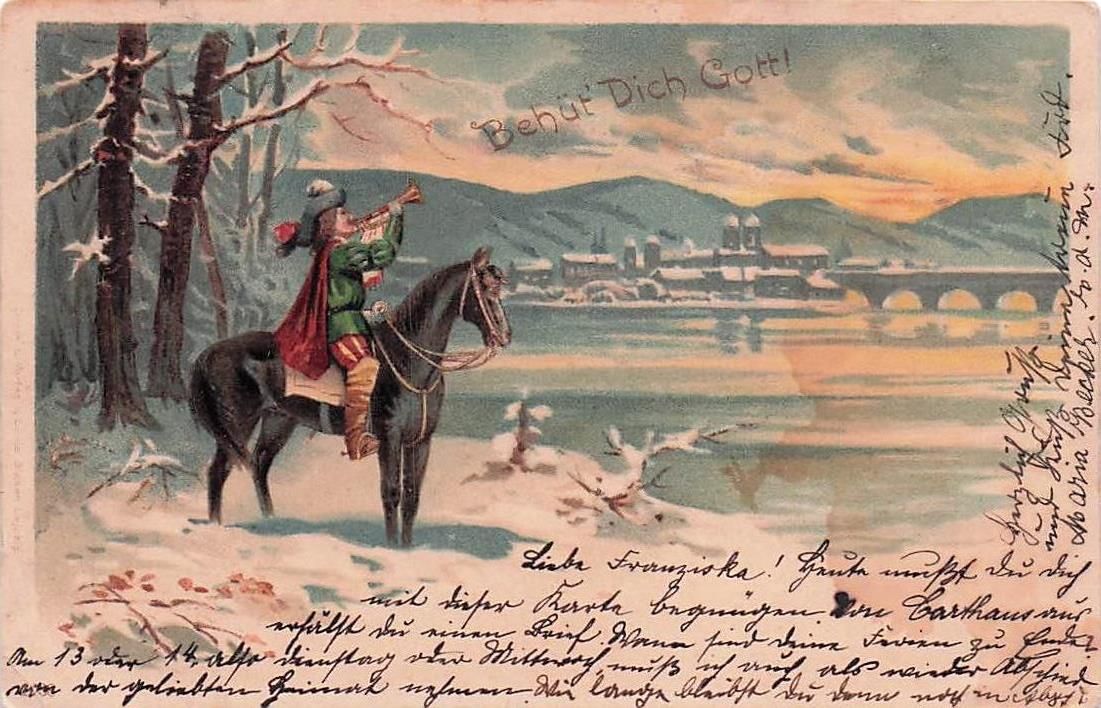 Behüt' Dich Gott!
Liebe Franziska! Heute mußt Du Dich
mit dieser Karte begnügen. Von Carthaus aus
erhälst du einen Brief. Wann sind deine Ferien zu Ende?
Am 13 oder 14, also dienstag oder Mittwoch muß ich auch als wieder Abschied
von der geliebten Heimat nehmen. Wie lange bleibst Du denn noch in
Herzlich Gruß
und Kuß
Maria Becker.